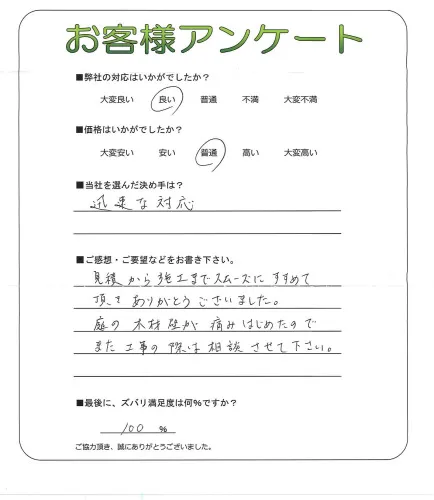 お客様アンケート
■弊社の対応はいかがでしたか？
大変良い 良い 普通 不満 大変不満
■価格はいかがでしたか？
大変安い 安い 普通 高い 大変高い
■当社を選んだ決め手は？
迅速な対応
■ご感想・ご要望などをお書き下さい。
見積から施工までスムーズにすすめて
頂きありがとうございました。
庭の木材壁が痛みはじめたので
また工事の際は相談させて下さい。
■最後に、ズバリ満足度は何％ですか？
100 ％
ご協力頂き、誠にありがとうございました。